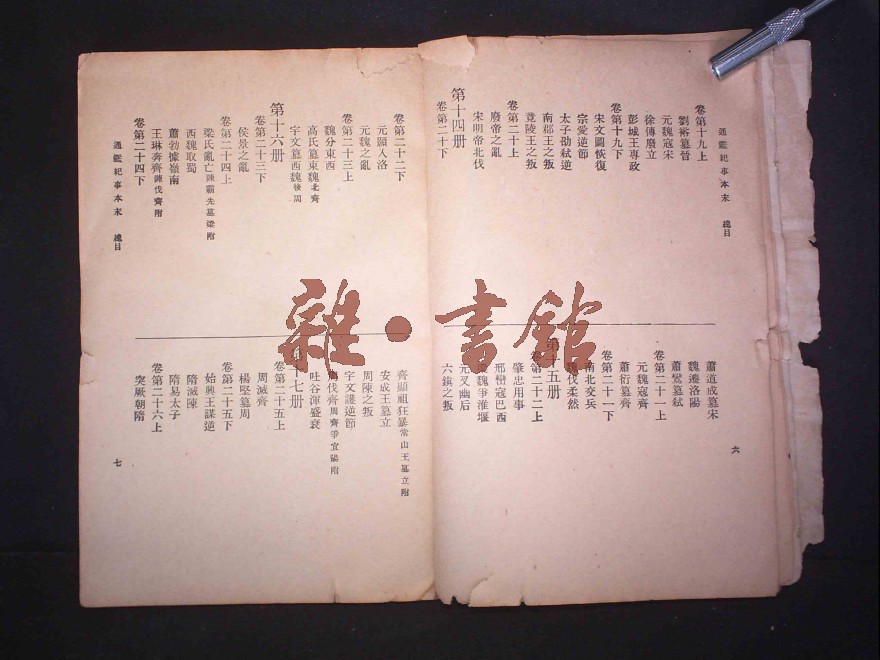 通鑑紀事本末 總目
卷第十九上
劉裕篡晉
元魏寇宋
徐傅廢立
彭城王專政
卷第十九下
宋文圖恢復
宗愛逆節
太子劭弒逆
南郡王之叛
竟陵王之叛
卷第二十上
廢帝之亂
宋明帝北伐
第十四册
卷第二十下
蕭道成篡宋
魏遷洛陽
蕭鸞篡弒
卷第二十一上
元魏寇齊
蕭衍篡齊
卷第二十一下
南北交兵
魏伐柔然
第十五册
卷第二十二上
肇忠用事
邢巒寇巴西
魏爭淮堰
元叉幽后
六鎮之叛
六
卷第二十二下
元顥入洛
元魏之亂
卷第二十三上
魏分東西
高氏篡東魏北齊
宇文篡西魏後周
第十六册
卷第二十三下
侯景之亂
卷第二十四上
梁氏亂亡陳霸先篡梁附
西魏取蜀
蕭勃據嶺南
王琳奔齊陳伐齊附
卷第二十四下
通鑑紀事本末 總目
齊顯祖狂暴常山王篡立附
安成王篡立
周陳之叛
宇文護逆節
周伐齊周齊爭宜陽附
吐谷渾盛衰
第十七册
卷第二十五上
周滅齊
楊堅篡周
卷第二十五下
始興王謀逆
隋滅陳
隋易太子
卷第二十六上
突厥朝隋
七
雜·書館